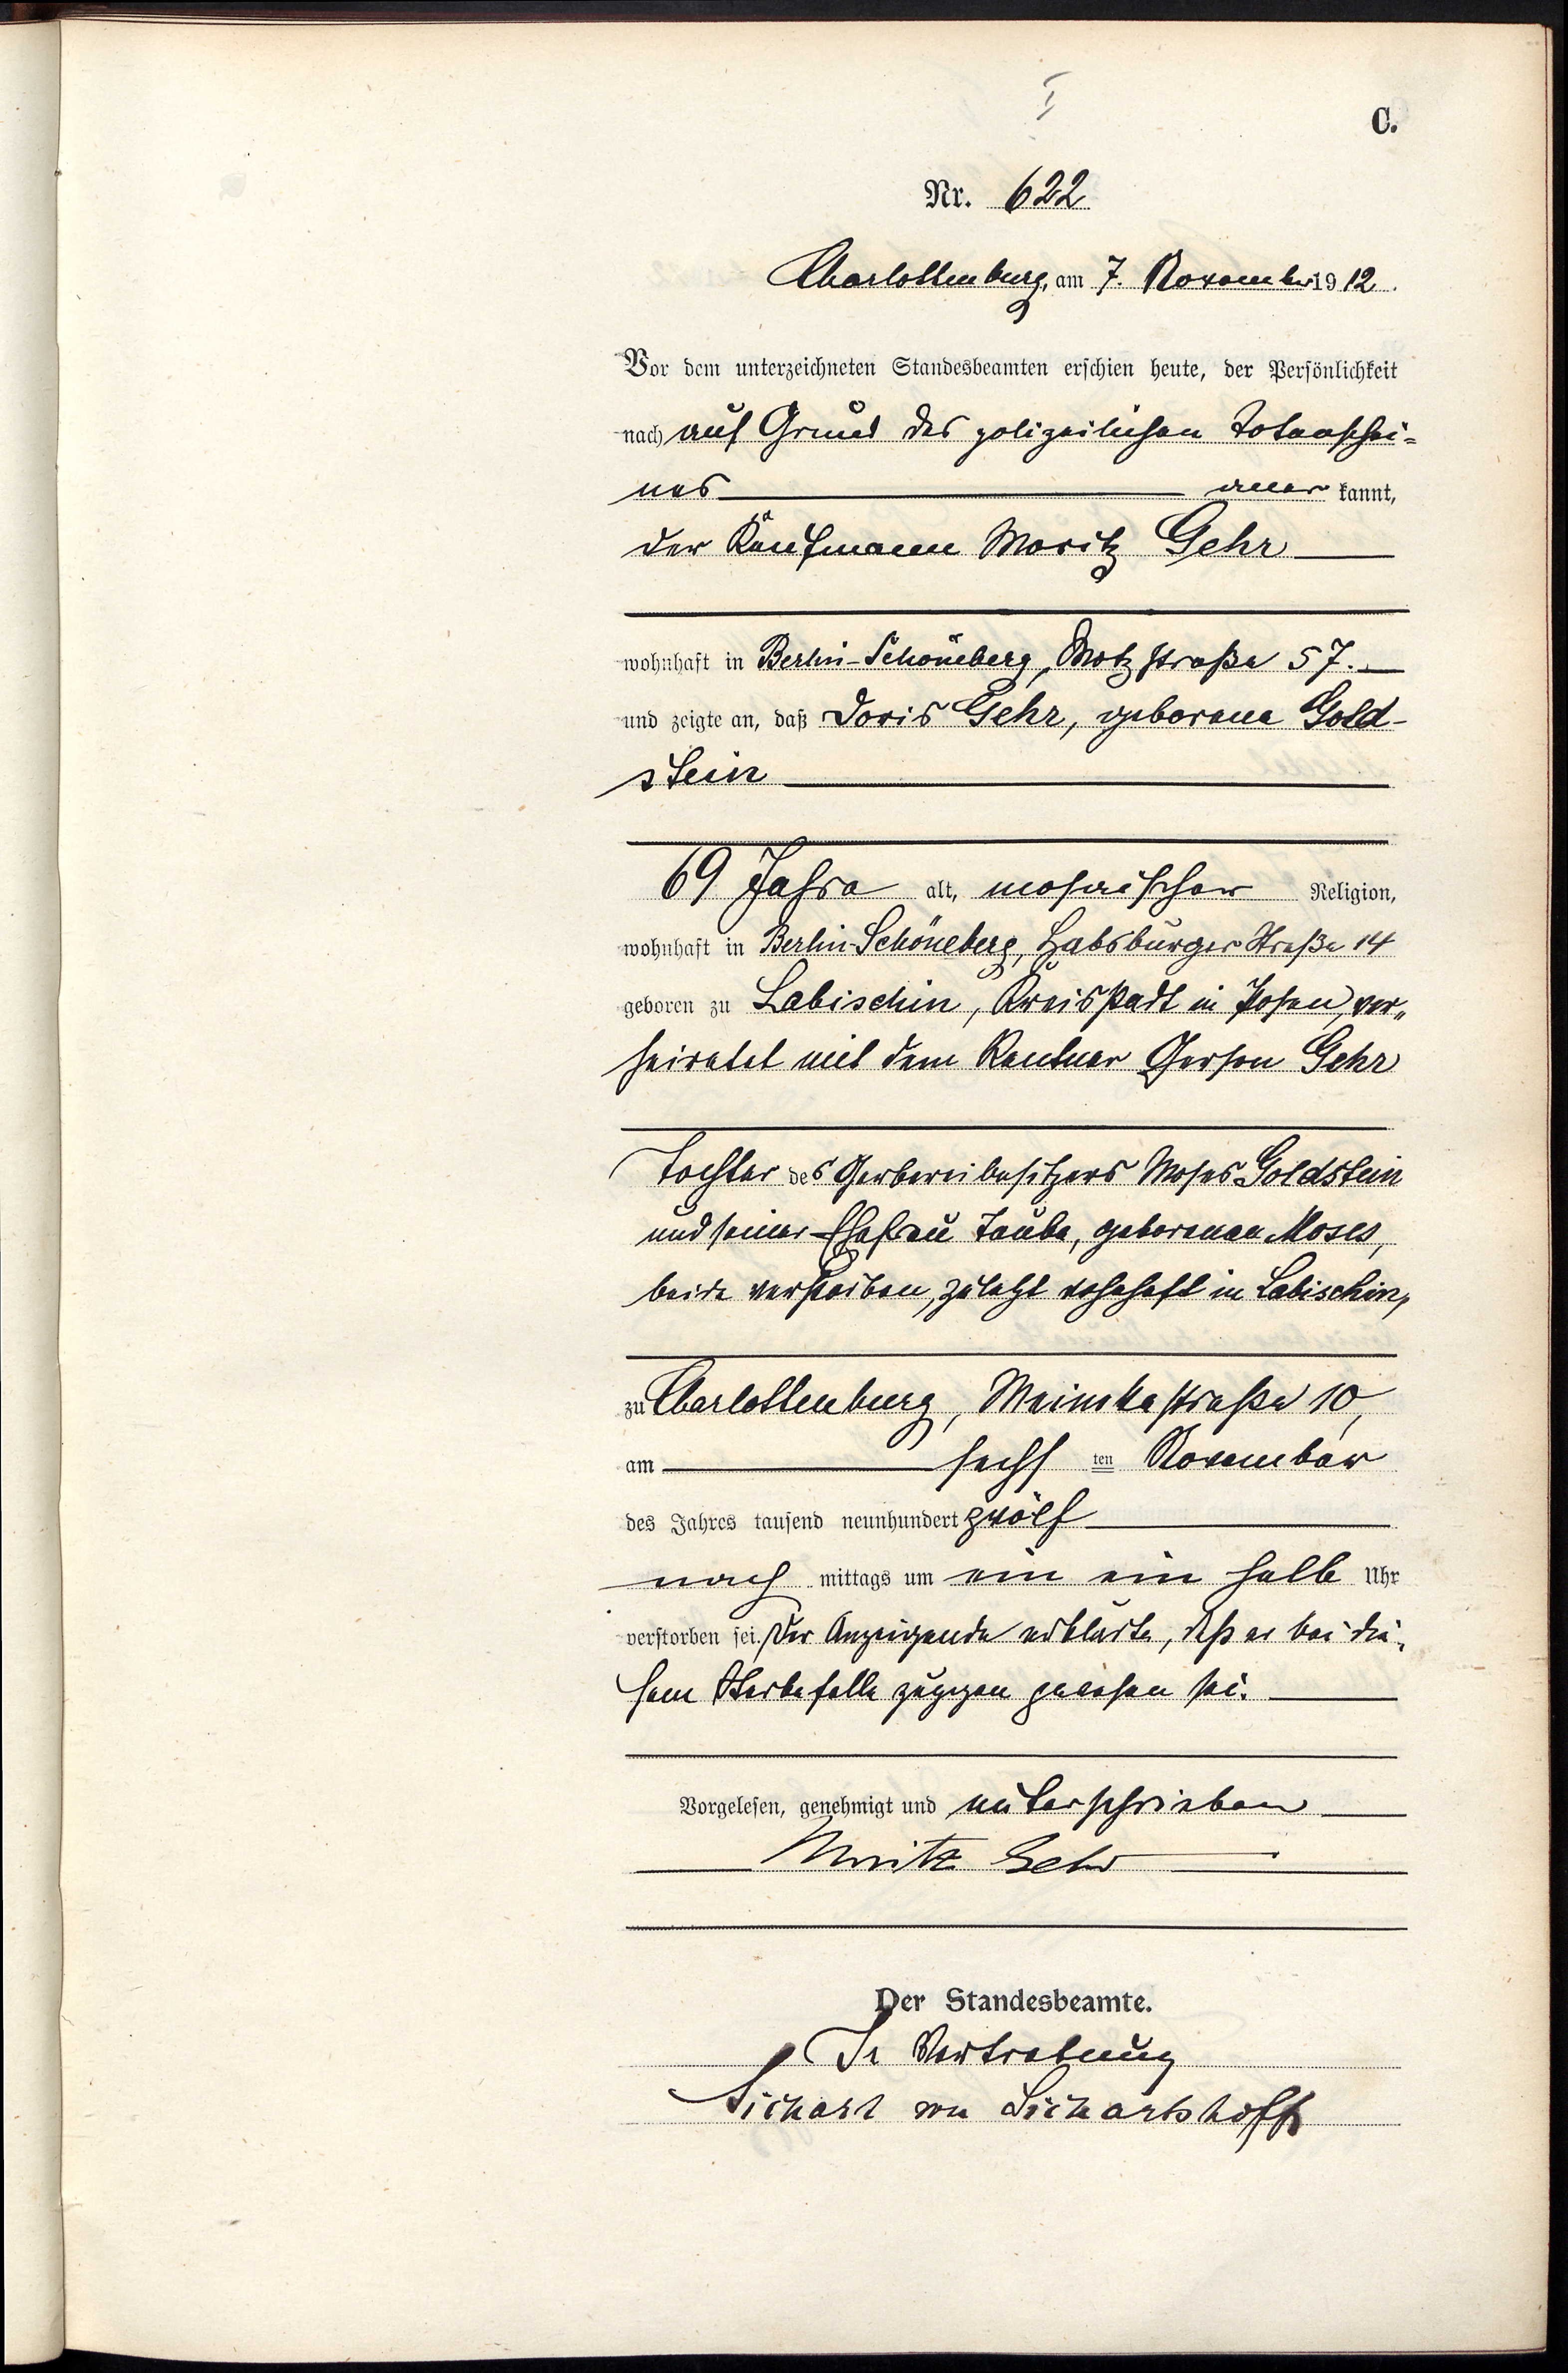 C.
Nr. 622
Charlottenburg, am 7. November 1912.
Vor dem unterzeichneten Standesbeamten erschien heute, der Persönlichkeit
nach auf Grund des polizeilichen Totenschei-
nes aner kannt,
der Kaufmann Moritz Gehr
wohnhaft in Berlin-Schöneberg, Motzstraße 57.
und zeigte an, daß Doris Gehr, geborene Gold-
stein
69 Jahre alt, mosaischer Religion,
wohnhaft in Berlin-Schöneberg, Habsburger Straße 14
geboren zu Labischin, Kreisstadt in Posen, ver-
heiratet mit dem Rentner Gerson Gehr
Tochter des Gerbereibesitzers Moses Goldstein
und seiner Ehefrau Taube, geborenen Moses,
beide verstorben, zuletzt wohnhaft in Labischin,
zu Charlottenburg, Meinekestraße 10,
am sechs ten November
des Jahres tausend neunhundert zwölf
nach mittags um ein ein halb Uhr
verstorben sei. Der Anzeigende erklärte, daß er bei die-
sem Sterbefalle zugegen gewesen sei.
Vorgelesen, genehmigt und unterschrieben
Moritz Gehr
Der Standesbeamte.
In Vertretung
Sichart von Sichartshoff